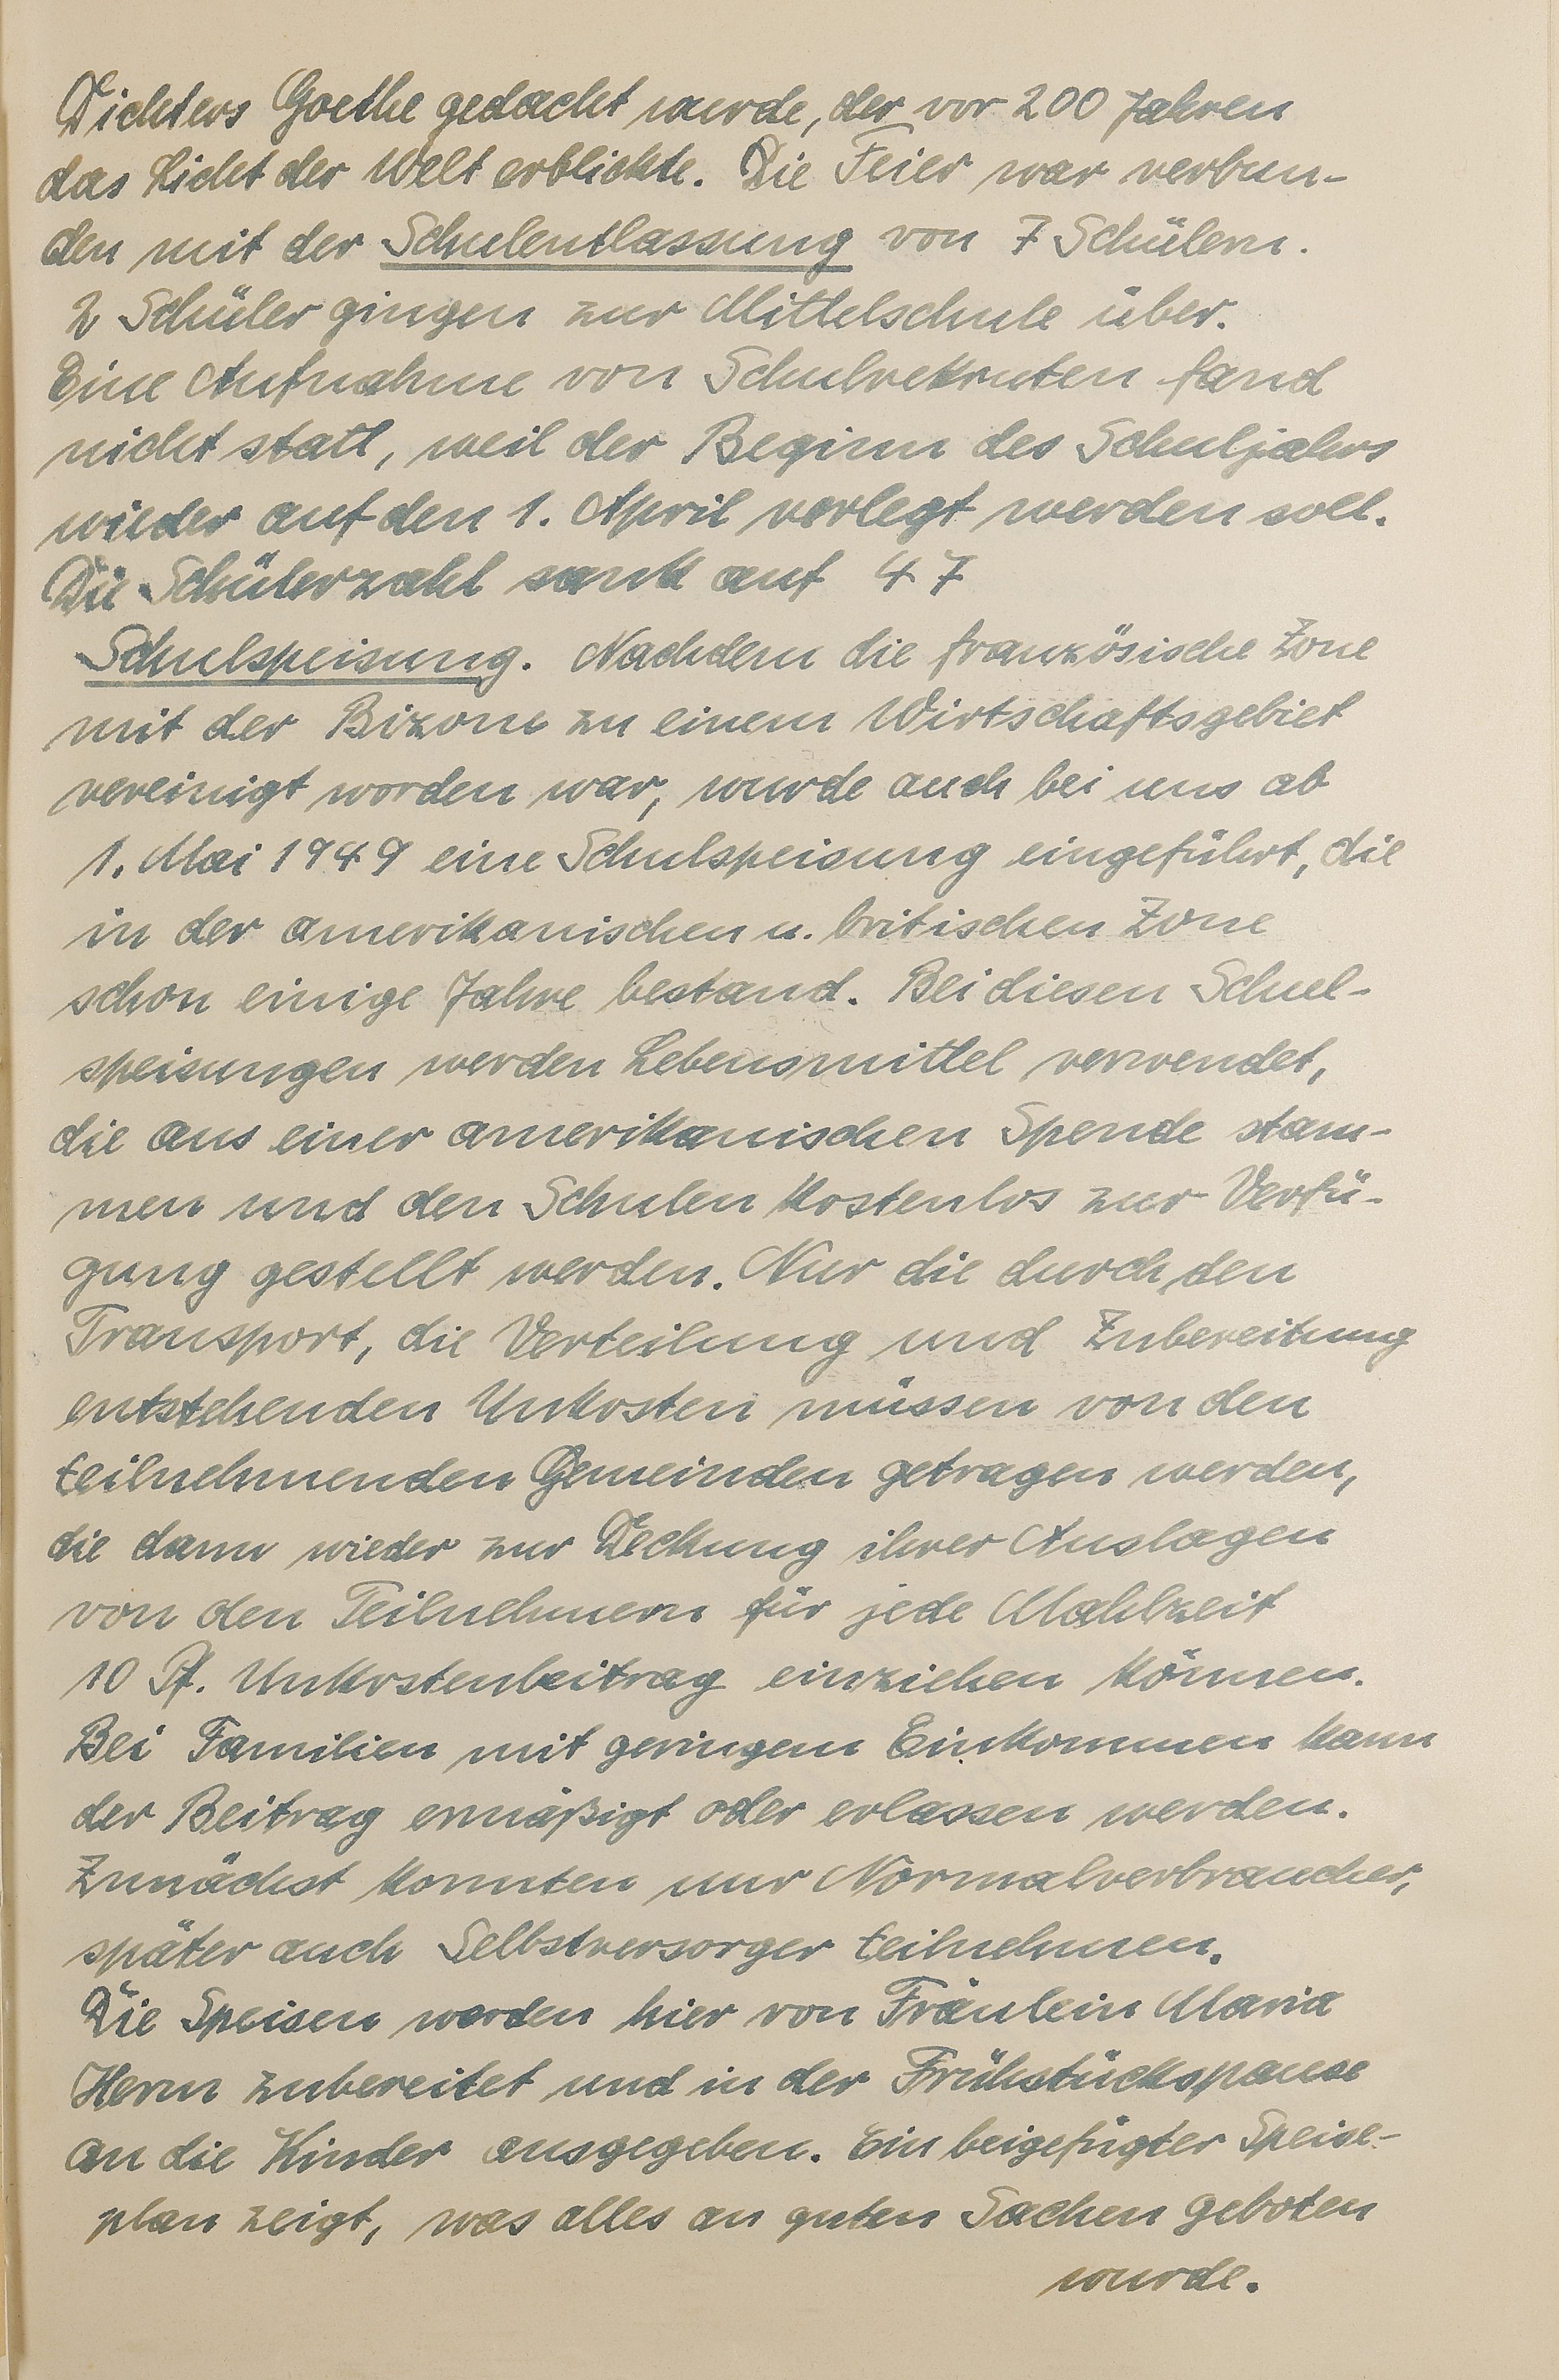 Dichters Goethe gedacht wurde, der vor 200 Jahren
das Licht der Welt erblickte. Die Feier war verbun-
den mit der Schulentlassung von 7 Schülern.
2 Schüler gingen zur Mittelschule über.
Eine Aufnahme von Schulrekruten fand
nicht statt, weil der Beginn des Schuljahrs
wieder auf den 1. April verlegt werden soll.
Die Schülerzahl sank auf 47
Schulspeisung. Nachdem die französische Zone
mit der Bizone zu einem Wirtschaftsgebiet
vereinigt worden war, wurde auch bei uns ab
1. Mai 1949 eine Schulspeisung eingeführt, die
in der amerikanischen u. britischen Zone
schon einige Jahre bestand. Bei diesen Schul-
speisungen werden Lebensmittel verwendet,
die aus einer amerikanischen Spende stam-
men und den Schulen kostenlos zur Verfü-
gung gestellt werden. Nur die durch den
Transport, die Verteilung und Zubereitung
entstehenden Unkosten müssen von den
teilnehmenden Gemeinden getragen werden,
die dann wieder zur Deckung ihrer Auslagen
von den Teilnehmern für jede Mahlzeit
10 Pf. Unkostenbeitrag einziehen können.
Bei Familien mit geringem Einkommen kann
der Beitrag ermäßigt oder erlassen werden.
Zunächst konnten nur Normalverbraucher,
später auch Selbstversorger teilnehmen.
Die Speisen werden hier von Fräulein Maria
Herm zubereitet und in der Frühstückspause
an die Kinder ausgegeben. Ein beigefügter Speise-
plan zeigt, was alles an guten Sachen geboten
wurde.